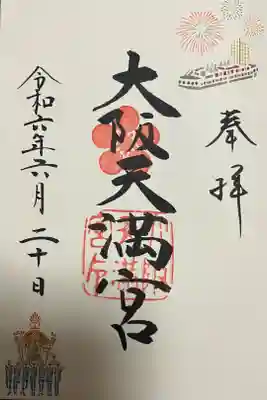 奉拝
大阪天満宮
令和六年六月二十日